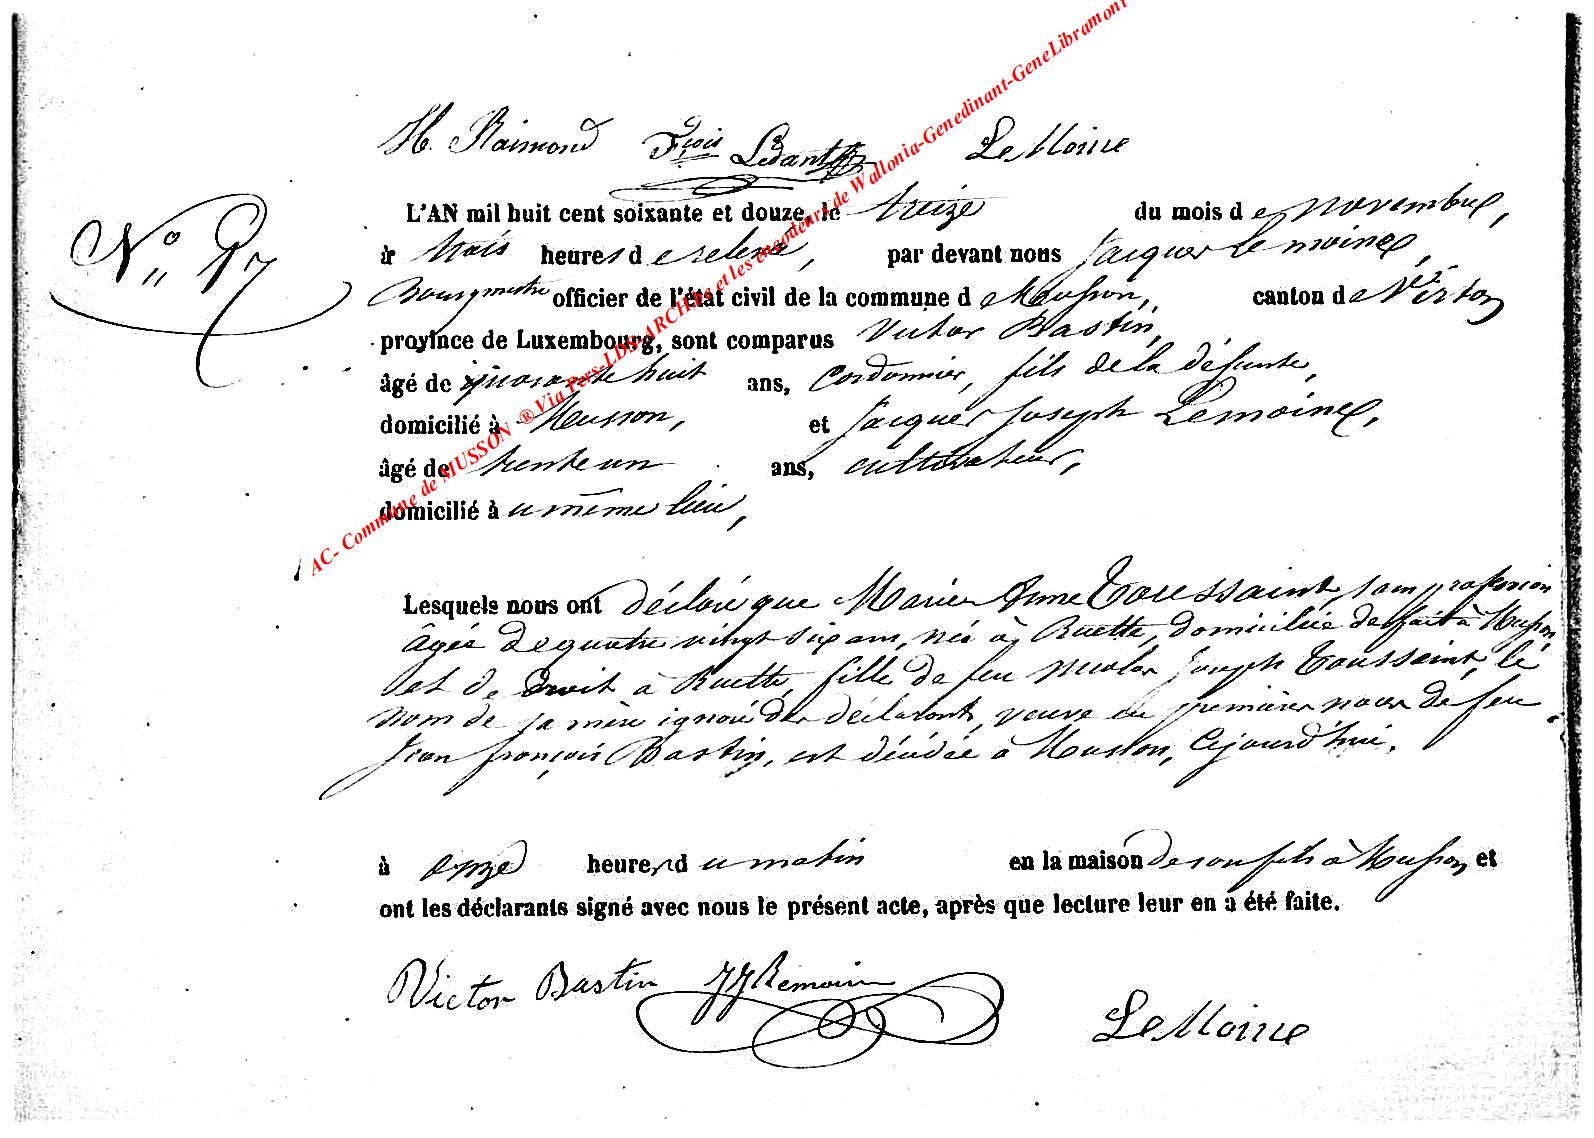 H. Raimond Fçois Ledant LeMoine
L'AN mil huit cent soixante et douze, le treize du mois de novembre,
N° 27
à trois heures de relevé, par devant nous Jacques Lemoine,
Bourgmestre officier de l'état civil de la commune de Musson, canton de Virton
province de Luxembourg, sont comparus Victor Bastin,
âgé de quarante huit ans, Cordonnier, fils de la défunte,
domicilié à Musson, et Jacques Joseph Lemoine,
âgé de trente un ans, cultivateur,
domicilié à u même lieu,
AC- Commune de MUSSON ® Via Pers-LDS-ARCHives et les encodeurs de Wallonia-Genedinant-GeneLibramont
Lesquels nous ont déclaré que Marie Anne Toussaint, sans profession
âgée de quatre vingt six ans, née à Ruette, domiciliée de fait à Musson
et de Droit à Ruette, fille de feu Nicolas Joseph Toussaint, le
nom de sa mère ignoré des déclarants, veuve en premières noces de feu
Jean françois Bastin, est décédée à Musson, Cejourd'hui,
à onze heures du matin en la maison de son fils à Musson et
ont les déclarants signé avec nous le présent acte, après que lecture leur en a été faite.
Victor Bastin JJLemoine
LeMoine